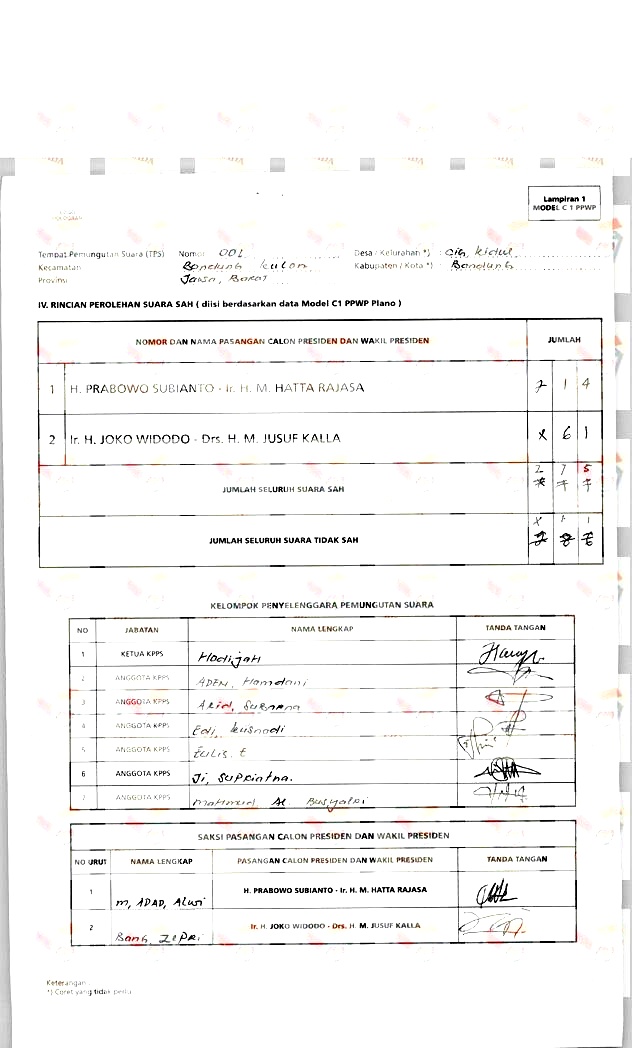 Lampiran 1
MODEL C 1 PPWP
Tempat Pemungutan Suara (TPS) Nomor 001 Desa / Kelurahan *) : Cig, kidul
Kecamatan Bandung kulon Kabupaten / Kota *) : Bandung
Provinsi Jawa, Barat
IV. RINCIAN PEROLEHAN SUARA SAH ( diisi berdasarkan data Model C1 PPWP Plano )
NOMOR DAN NAMA PASANGAN CALON PRESIDEN DAN WAKIL PRESIDEN JUMLAH
1 H. PRABOWO SUBIANTO - Ir. H. M. HATTA RAJASA 2 1 4
2 Ir. H. JOKO WIDODO - Drs. H. M. JUSUF KALLA X 6 1
2 7 5
JUMLAH SELURUH SUARA SAH
JUMLAH SELURUH SUARA TIDAK SAH
KELOMPOK PENYELENGGARA PEMUNGUTAN SUARA
NO JABATAN NAMA LENGKAP TANDA TANGAN
1 KETUA KPPS Hodijah
2 ANGGOTA KPPS ADEN, Hamdani
3 ANGGOTA KPPS Arid, Suparna
4 ANGGOTA KPPS Edi, kusnadi
5 ANGGOTA KPPS Eulis. E
6 ANGGOTA KPPS Ji, Supriatna.
7 ANGGOTA KPPS Mahmud Al
SAKSI PASANGAN CALON PRESIDEN DAN WAKIL PRESIDEN
NO URUT NAMA LENGKAP PASANGAN CALON PRESIDEN DAN WAKIL PRESIDEN TANDA TANGAN
1 M, ADAD, Alwi H. PRABOWO SUBIANTO - Ir. H. M. HATTA RAJASA
2 Bang, ZEPRI Ir. H. JOKO WIDODO - Drs. H. M. JUSUF KALLA
Keterangan :
*) Coret yang tidak perlu